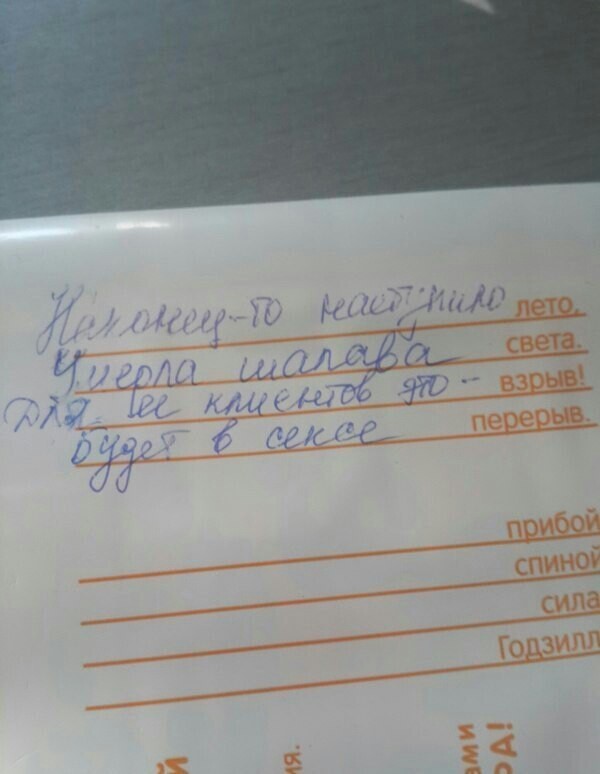 Наконец-то наступило лето,
Умерла шалава света.
Для ее клиентов это - взрыв!
Будет в сексе перерыв.
прибой
спиной
сила
Годзилл